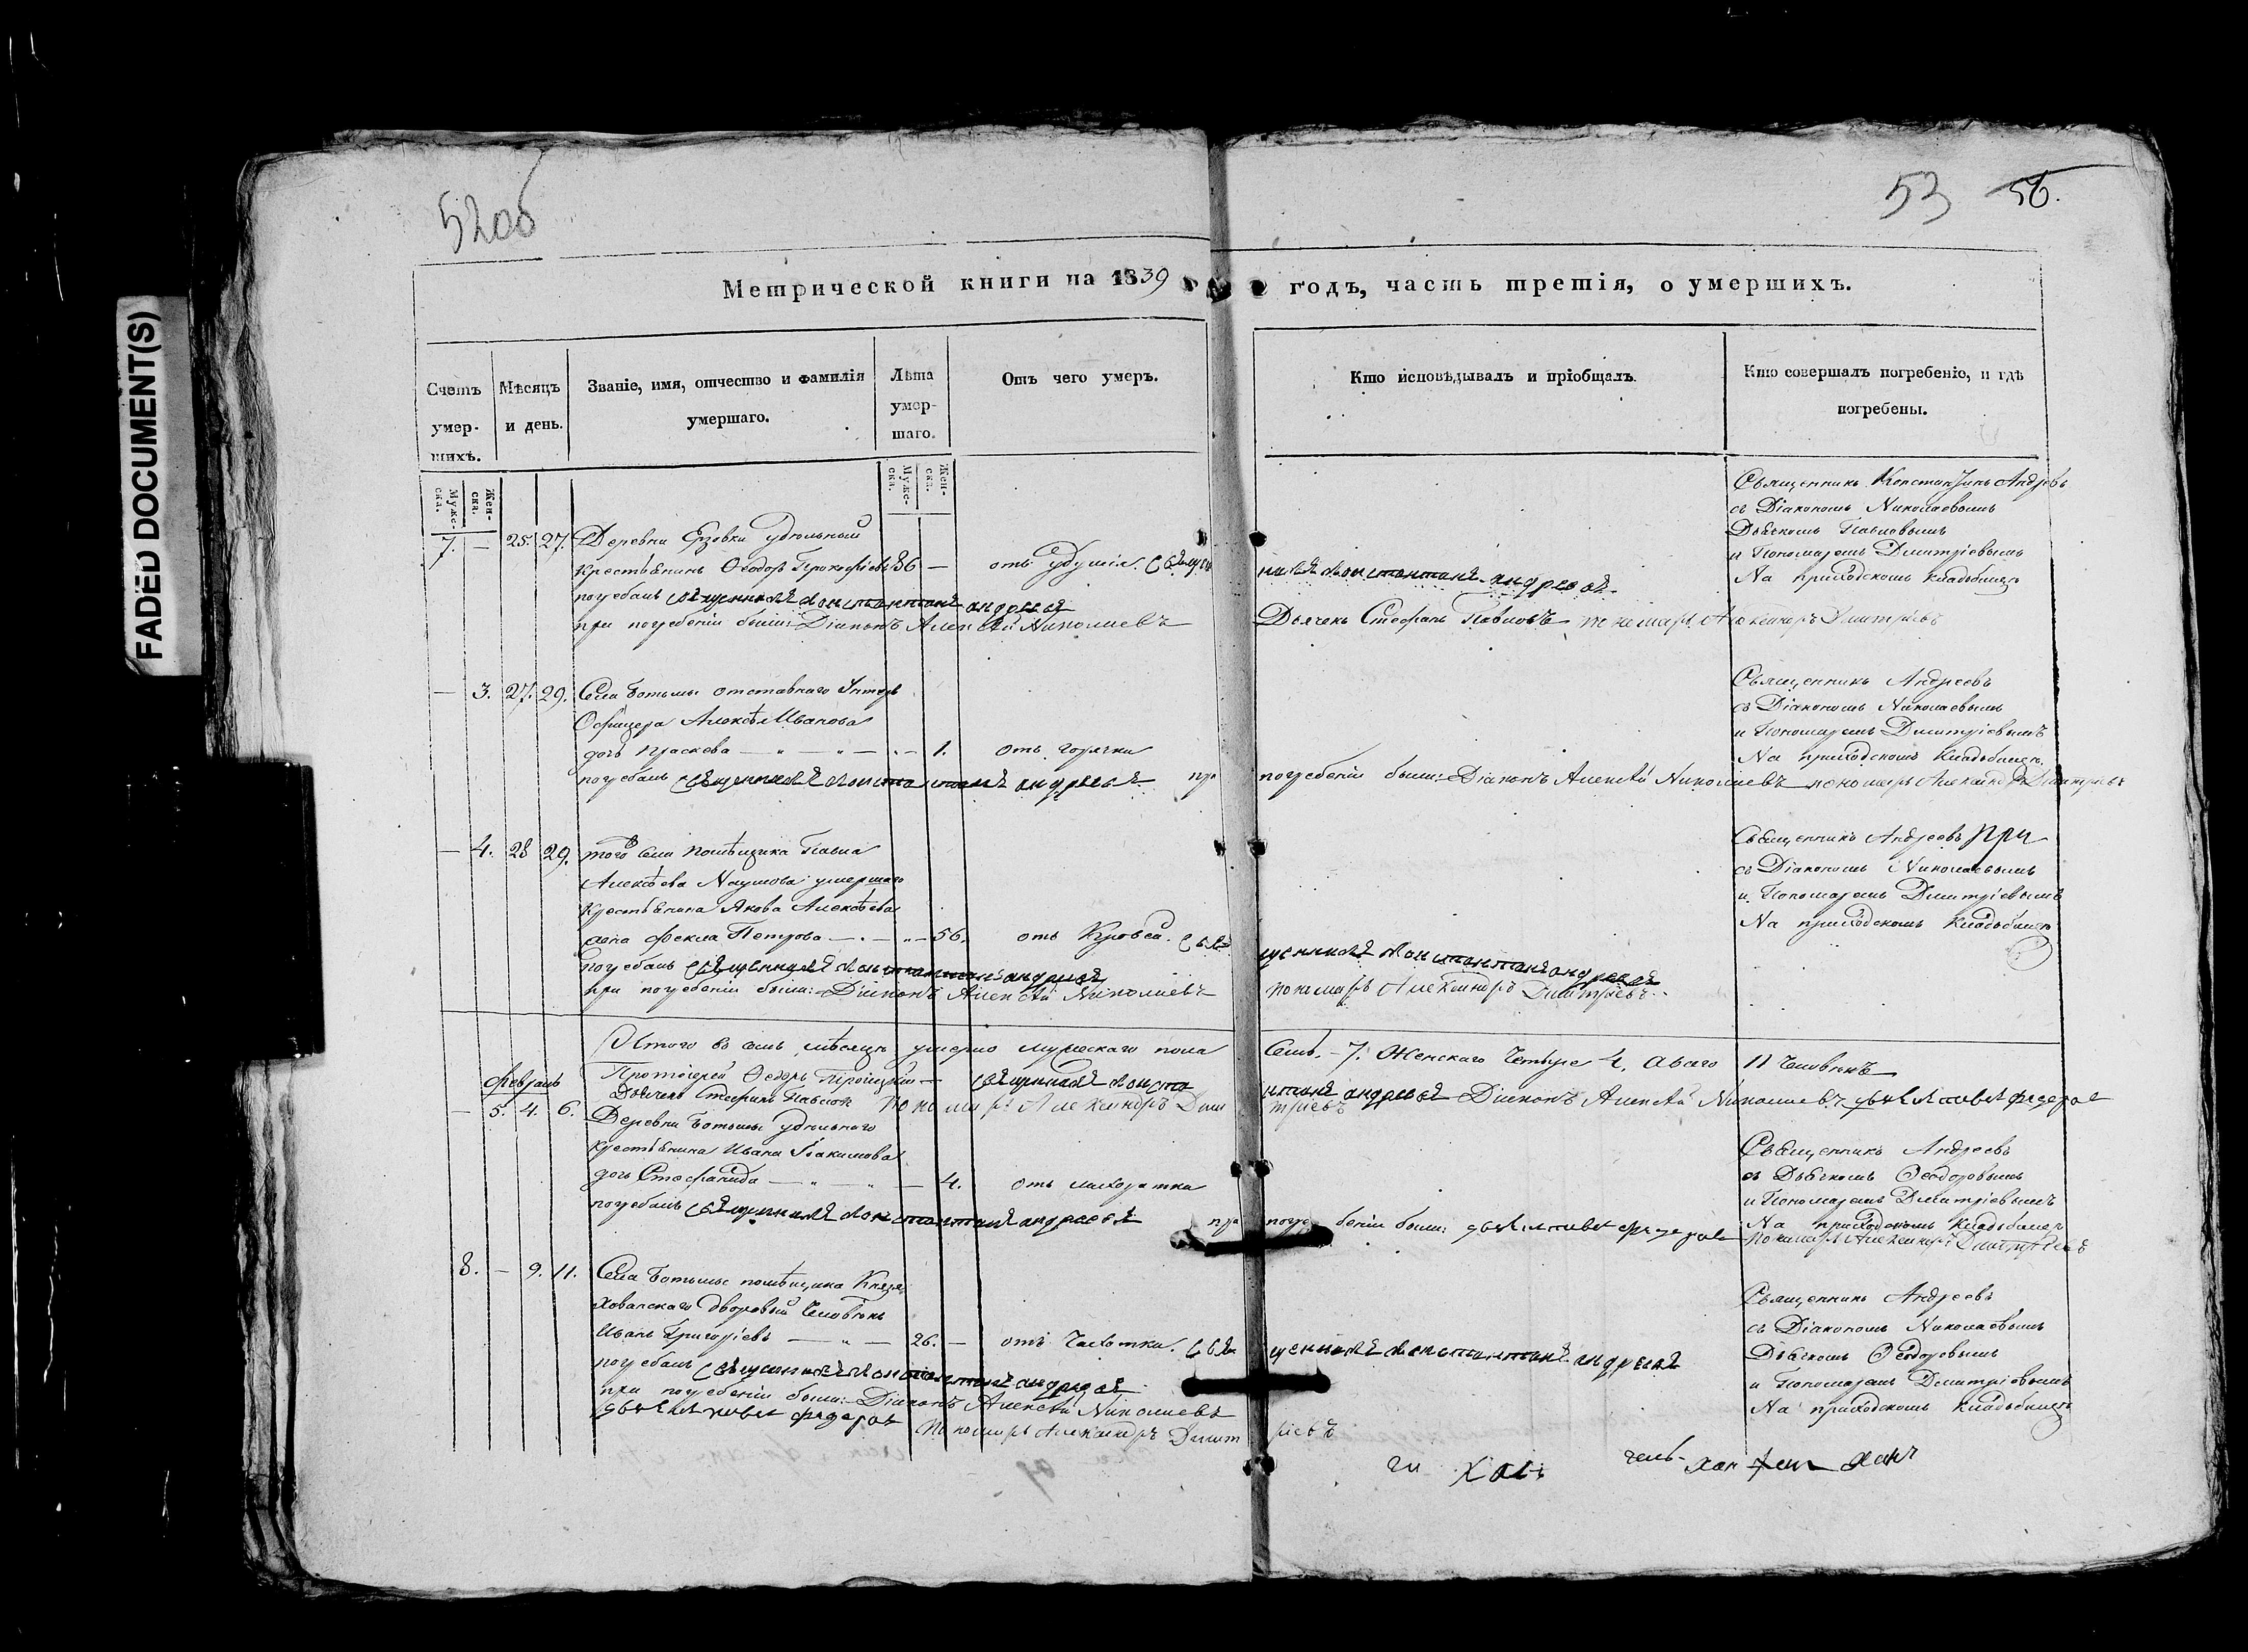 FADED DOCUMENT(S)
52об
53 56.
Метрической книги на 1839 годъ, часть третія, о умершихъ.
Счетъ умер-шихъ.
Муже-ска.
Жен-ска.
Мѣсяцъ и день.
Званіе, имя, отчество и фамилія умершаго.
Лѣта умер-шаго.
Муже-ска.
Жен-ска.
Отъ чего умеръ.
Кто исповѣдывалъ и пріобщалъ.
Кто совершалъ погребеніе, и гдѣ погребены.
7. — 25. 27. Деревни Ерзовки удѣльный
крестьянинъ Ѳеодоръ Прокофіевъ 86 — отъ удушія. Священникъ Константинъ Андреевъ.
погребалъ священникъ Константинъ Андреевъ
при погребеніи были: Діаконъ Алексѣй Николаевъ Дьячекъ Стефанъ Павловъ пономарь Александръ Дмитріевъ
Священникъ Константинъ Андреевъ
съ Діакономъ Николаевымъ
Дьячкомъ Павловымъ
и Пономаремъ Дмитріевымъ
На приходскомъ кладбищѣ
— 3. 27. 29. Села Ботьмы отставнаго Унтеръ
Офицера Алексѣя Иванова
дочь Праскева — — 1. отъ горячки
погребалъ священникъ Константинъ Андреевъ при погребеніи были: Діаконъ Алексѣй Николаевъ пономарь Александръ Дмитріевъ
Священникъ Андреевъ
съ Діакономъ Николаевымъ
и Пономаремъ Дмитріевымъ
На приходскомъ кладбищѣ.
— 4. 28 29. того села помѣщика Павла
Алексѣева Наумова умершаго
крестьянина Якова Алексѣева
жена Фекла Петрова — — 56. отъ Священникъ Константинъ Андреевъ
погребалъ священникъ Константинъ Андреевъ
при погребеніи были: Діаконъ Алексѣй Николаевъ пономарь Александръ Дмитріевъ.
Священникъ Андреевъ при
съ Діакономъ Николаевымъ
и Пономаремъ Дмитріевымъ
На приходскомъ кладбищѣ
Итого въ семъ мѣсяцѣ умерло мужескаго пола Семь. — 7. Женскаго Четыре 4, Обаго 11 Человѣкъ
Протоіерей Ѳедоръ Троицкій — священникъ Константинъ Андреевъ Діаконъ Алексѣй Николаевъ
Дьячекъ Стефанъ Павловъ Пономарь Александръ Дмитріевъ
Февраль
— 5. 4. 6. Деревни Ботьмы удѣльнаго
крестьянина Ивана
дочь Стефанида — — — 4. отъ лихорадки
погребалъ священникъ Константинъ Андреевъ при погребеніи были:
Священникъ Андреевъ
съ Дьячкомъ Ѳеодоровымъ
и Пономаремъ Дмитріевымъ
На приходскомъ кладбищѣ
пономарь Александръ Дмитріевъ
8. — 9. 11. Села Ботьмы помѣщика Князя
Хованскаго дворовый Человѣкъ
Иванъ Григорьевъ — — 26. — отъ Чахотки. Священникъ Константинъ Андреевъ
погребалъ священникъ Константинъ Андреевъ
при погребеніи были: Діаконъ Алексѣй Николаевъ
Пономарь Александръ Дмитріевъ
Священникъ Андреевъ
съ Діакономъ Николаевымъ
Дьячкомъ Ѳеодоровымъ
и Пономаремъ Дмитріевымъ
На приходскомъ кладбищѣ